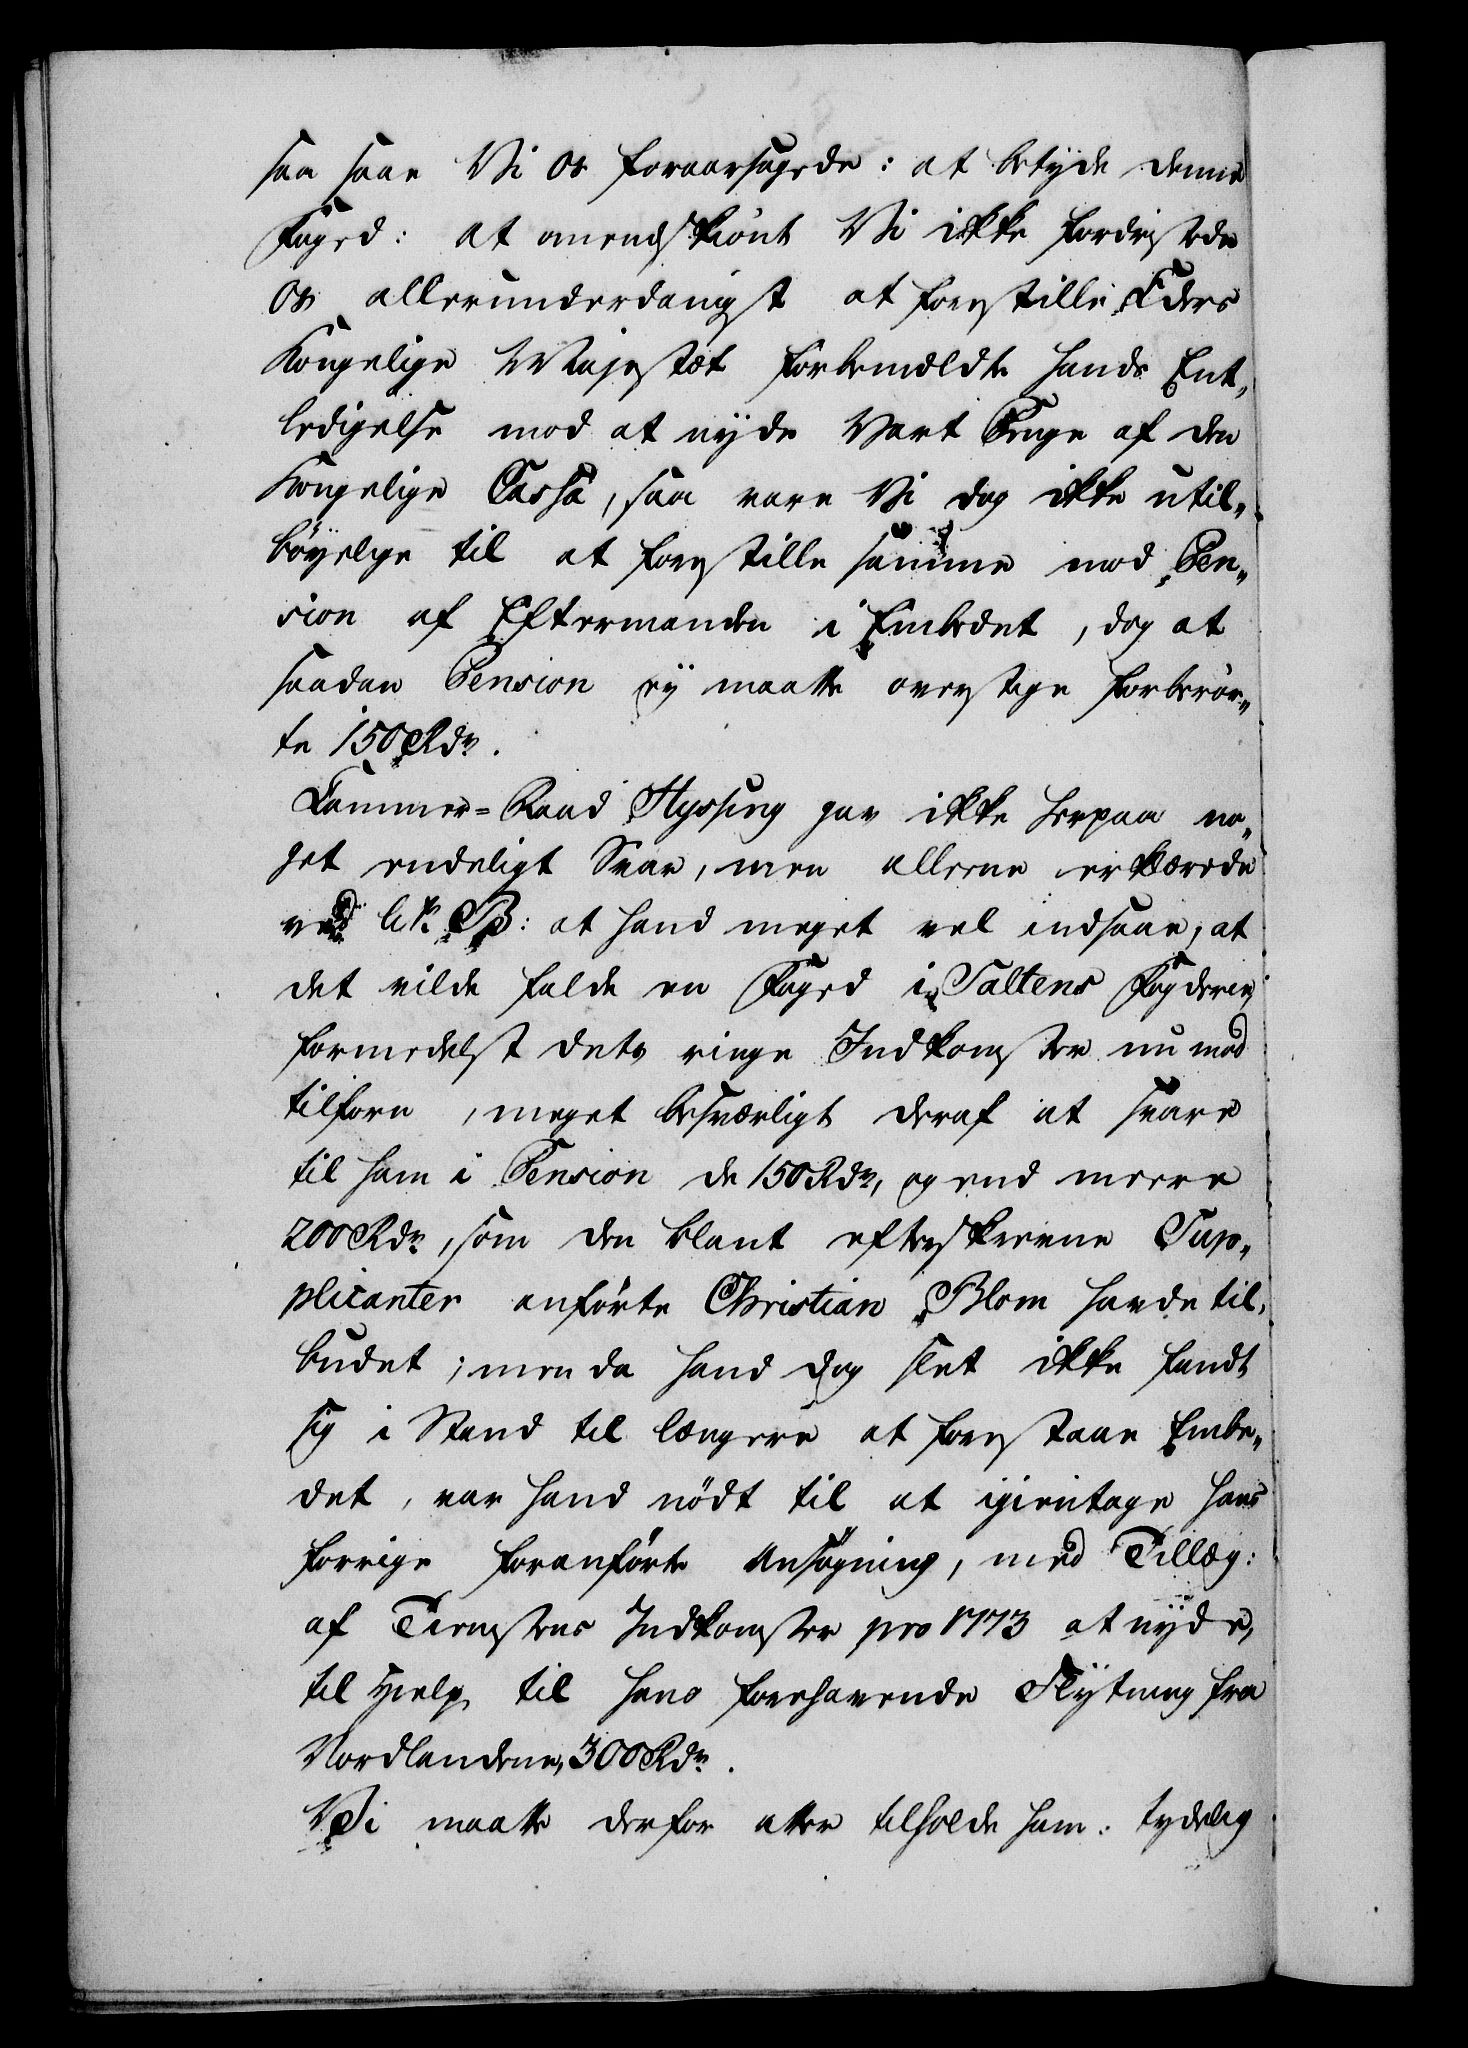 saa saae Vi os foraarsagede: at betyde denne
Foged: at omendskiönt Vi ikke fordristede
os allerunderdanigst at forestille Eders
Kongelige Majestæt forbemeldte hands Ent„
ledigelse mod at nyde Vart Penge af den
Kongelige Cassa, saa vare Vi dog ikke util„
böyelige til at forestille samme mod Pen„
sion af Eftermanden i Embedet, dog at
saadan Pension ey maatte overstige forberör„
te 150 Rdr.
Kammer-Raad Hyssing gav ikke herpaa no„
get endeligt Svar, men alleene erklærede
ved lit. B: at hand meget vel indsaae, at
det vilde falde en Foged i Saltens Fogderie,
formedelst dets ringe Indkomster nu mod
tilforn, meget besværligt deraf at svare
til ham i Pension de 150 Rdr, og end meere
200 Rdr, som den blant efterskreevne Sup„
plicanter anförte Christian Blom havde til„
budet; men da hand dog slet ikke fandt
sig i Stand til længere at forestaae Embe„
det, var hand nödt til at igientage hans
forrige foranförte Ansögning, med Tillæg:
af Tienestens Indkomster pro 1773 at nyde,
til Hielp til hans forehavende Flytning fra
Nordlandene, 300 Rdr.
Vi maatte derfor atter tilholde ham: tydelig